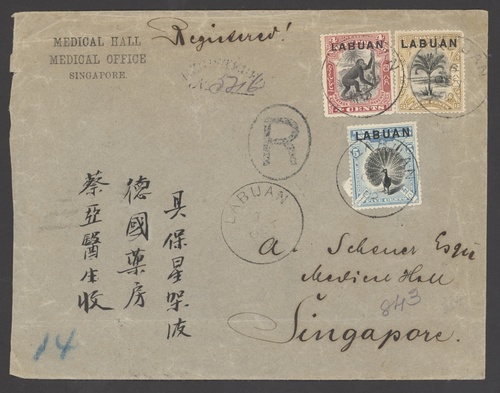 MEDICAL HALL
MEDICAL OFFICE
SINGAPORE.
Registered!
LABUAN
CENTS
LABUAN
LABUAN
R
LABUAN
具保星架波
德國藥房
蔡亞醫生收
A. Scheuer Esqu
Medical Hall
Singapore.
843
14